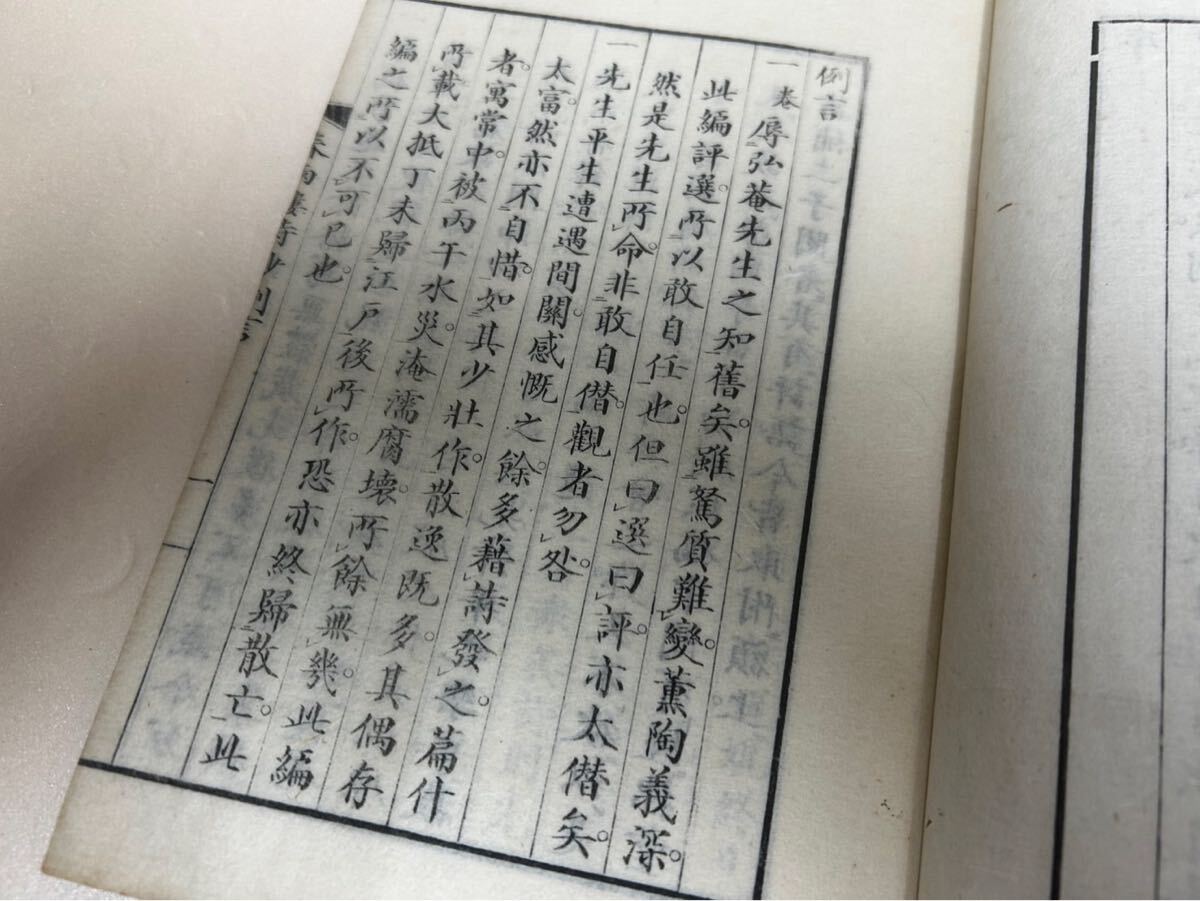 例言
一巻辱弘菴先生之知舊矣。雖駑質難變。薫陶義深。
此編評選。所以敢自任也。但曰選曰評。亦太僭矣。
然是先生所命。非敢自僭。觀者勿咎。
一先生平生遭遇間關。感慨之餘。多藉詩發之。篇什
太富。然亦不自惜。如其少壯作。散逸既多。其偶存
者。寓常中。被丙午水災。淹濡腐壞。所餘無幾。此編
所載大抵丁未歸江戶後所作。恐亦終歸散亡。此
編之所以不可已也。
春雨樓詩少例言 一